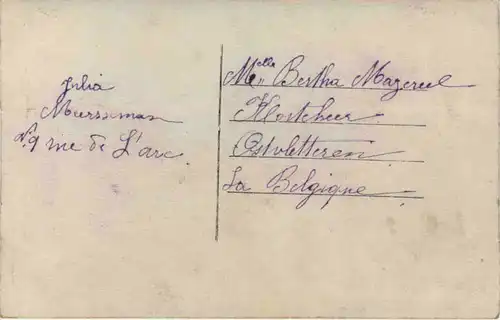 Julia
Meersseman
N.9 rue de L'arc.
Melle Bertha Mazereel
Klostcheer
Ostvletteren
La Belgique